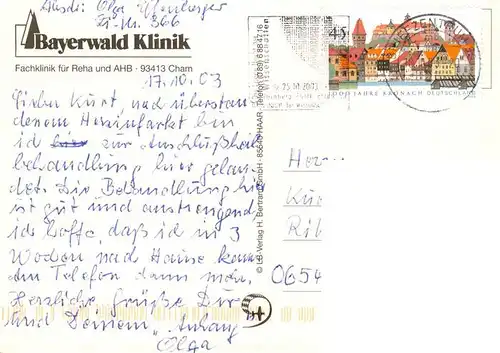 Absdr: Olga Effenberger
Zi. Nr. 366
Bayerwald Klinik
Fachklinik für Reha und AHB · 93413 Cham
17.10.03
Lieber Kurt, nach überstan-
denem Herzinfarkt bin
ich zur Anschlußheil
behandlung hier gelan-
det. Die Behandlung hier
ist gut und anstrengend
ich hoffe, daß ich in 3
Wochen nach Hause kann
am Telefon dann mehr.
Herzliche Grüße Dir
und Deinem "Anhang"
Olga
© LB-Verlag H. Bertram GmbH · 85540 HAAR · Telefon (089) 6884716
45
1000 JAHRE KRONACH DEUTSCHLAND
Her...
Kur
Rib
0654